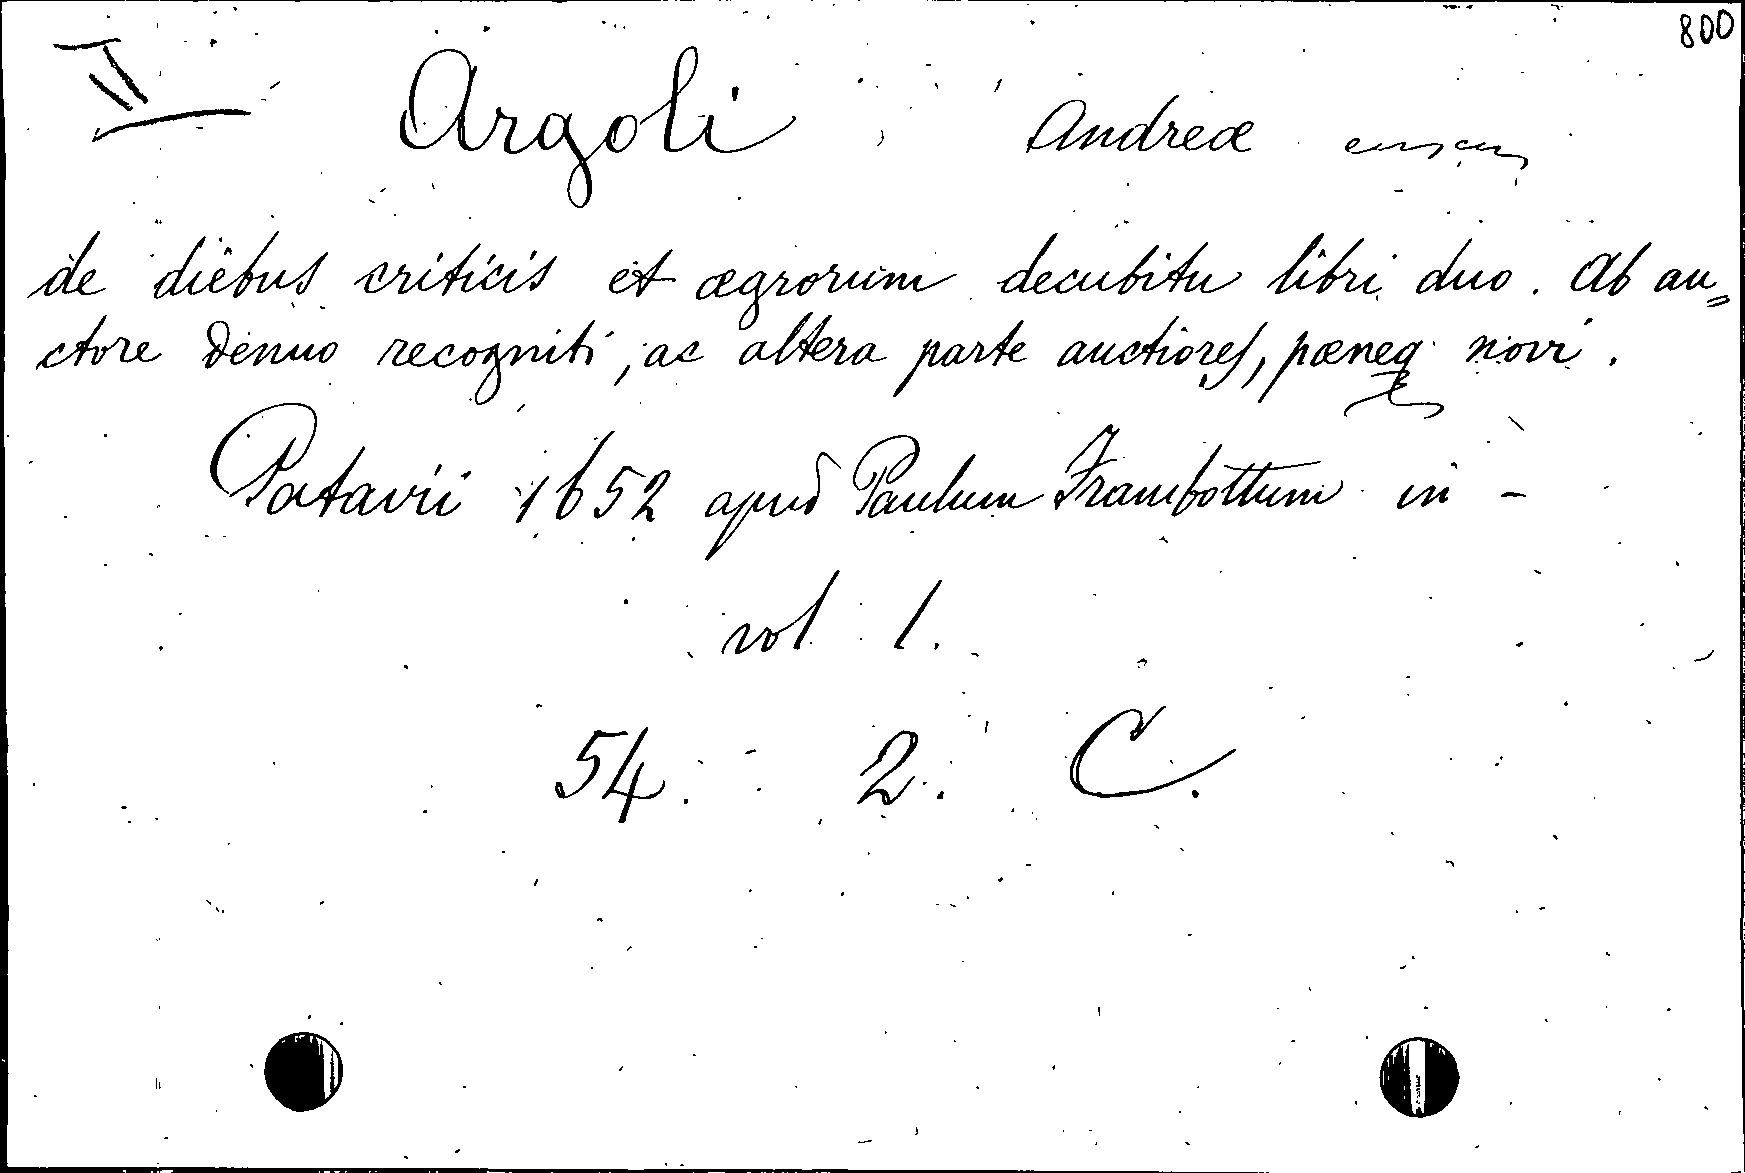 800
II Argoli Andreæ
de diebus criticis et ægrorum decubitu libri duo. Ab au=
ctore denuo recogniti, ac altera parte auctiores, pæneq novi.
Patavii 1652 apud Paulum Frambottum in -
vol 1.
54. 2. C.